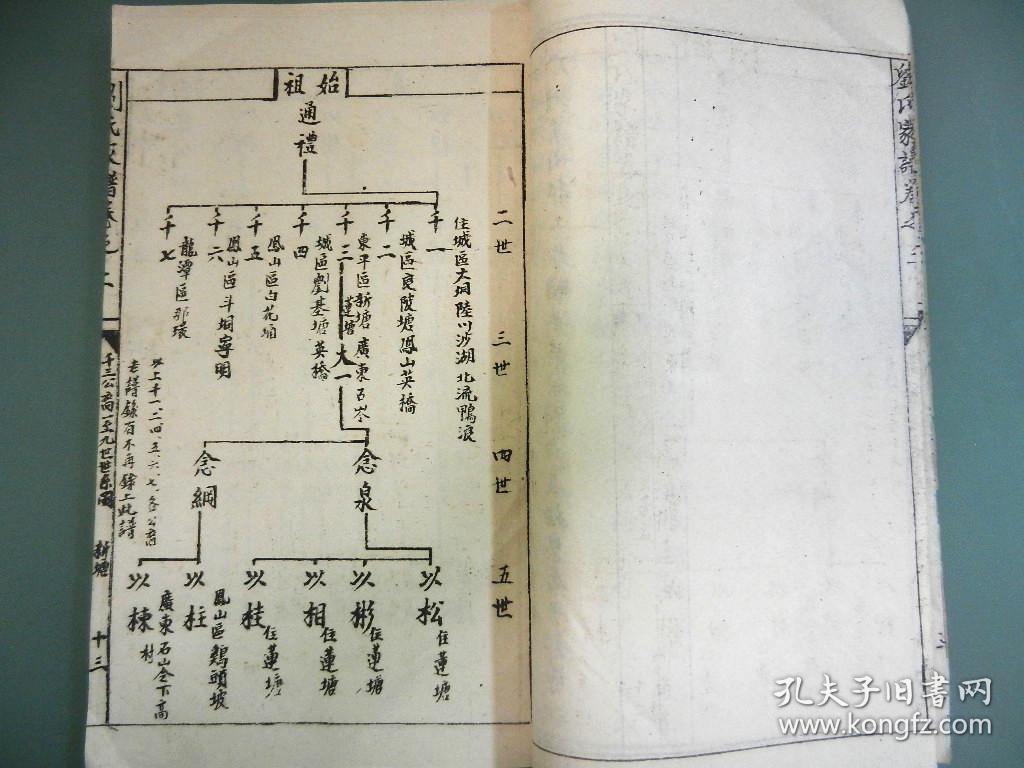 始祖
通禮
二世
千一
住城區大垌陸川沙湖北流鴨浪
千二
城區良陂塘鳳山英橋
千三
東平區新塘廣東石岑
蓮塘
千四
城區劉基塘英橋
千五
鳳山區白花埇
千六
鳳山區斗垌寧明
千七
龍潭區那壊
三世
大一
四世
念泉
念綱
五世
以松
住蓮塘
以彬
住蓮塘
以相
住蓮塘
以桂
住蓮塘
以柱
鳳山區鷄頭坡
以棟
廣東石山令下高村
以上千一、二、四、五、六、七、各公裔
老譜錄有不再錄上此譜
千三公裔一至九世世系圖
新塘
十三
孔夫子旧書网
www.kongfz.com